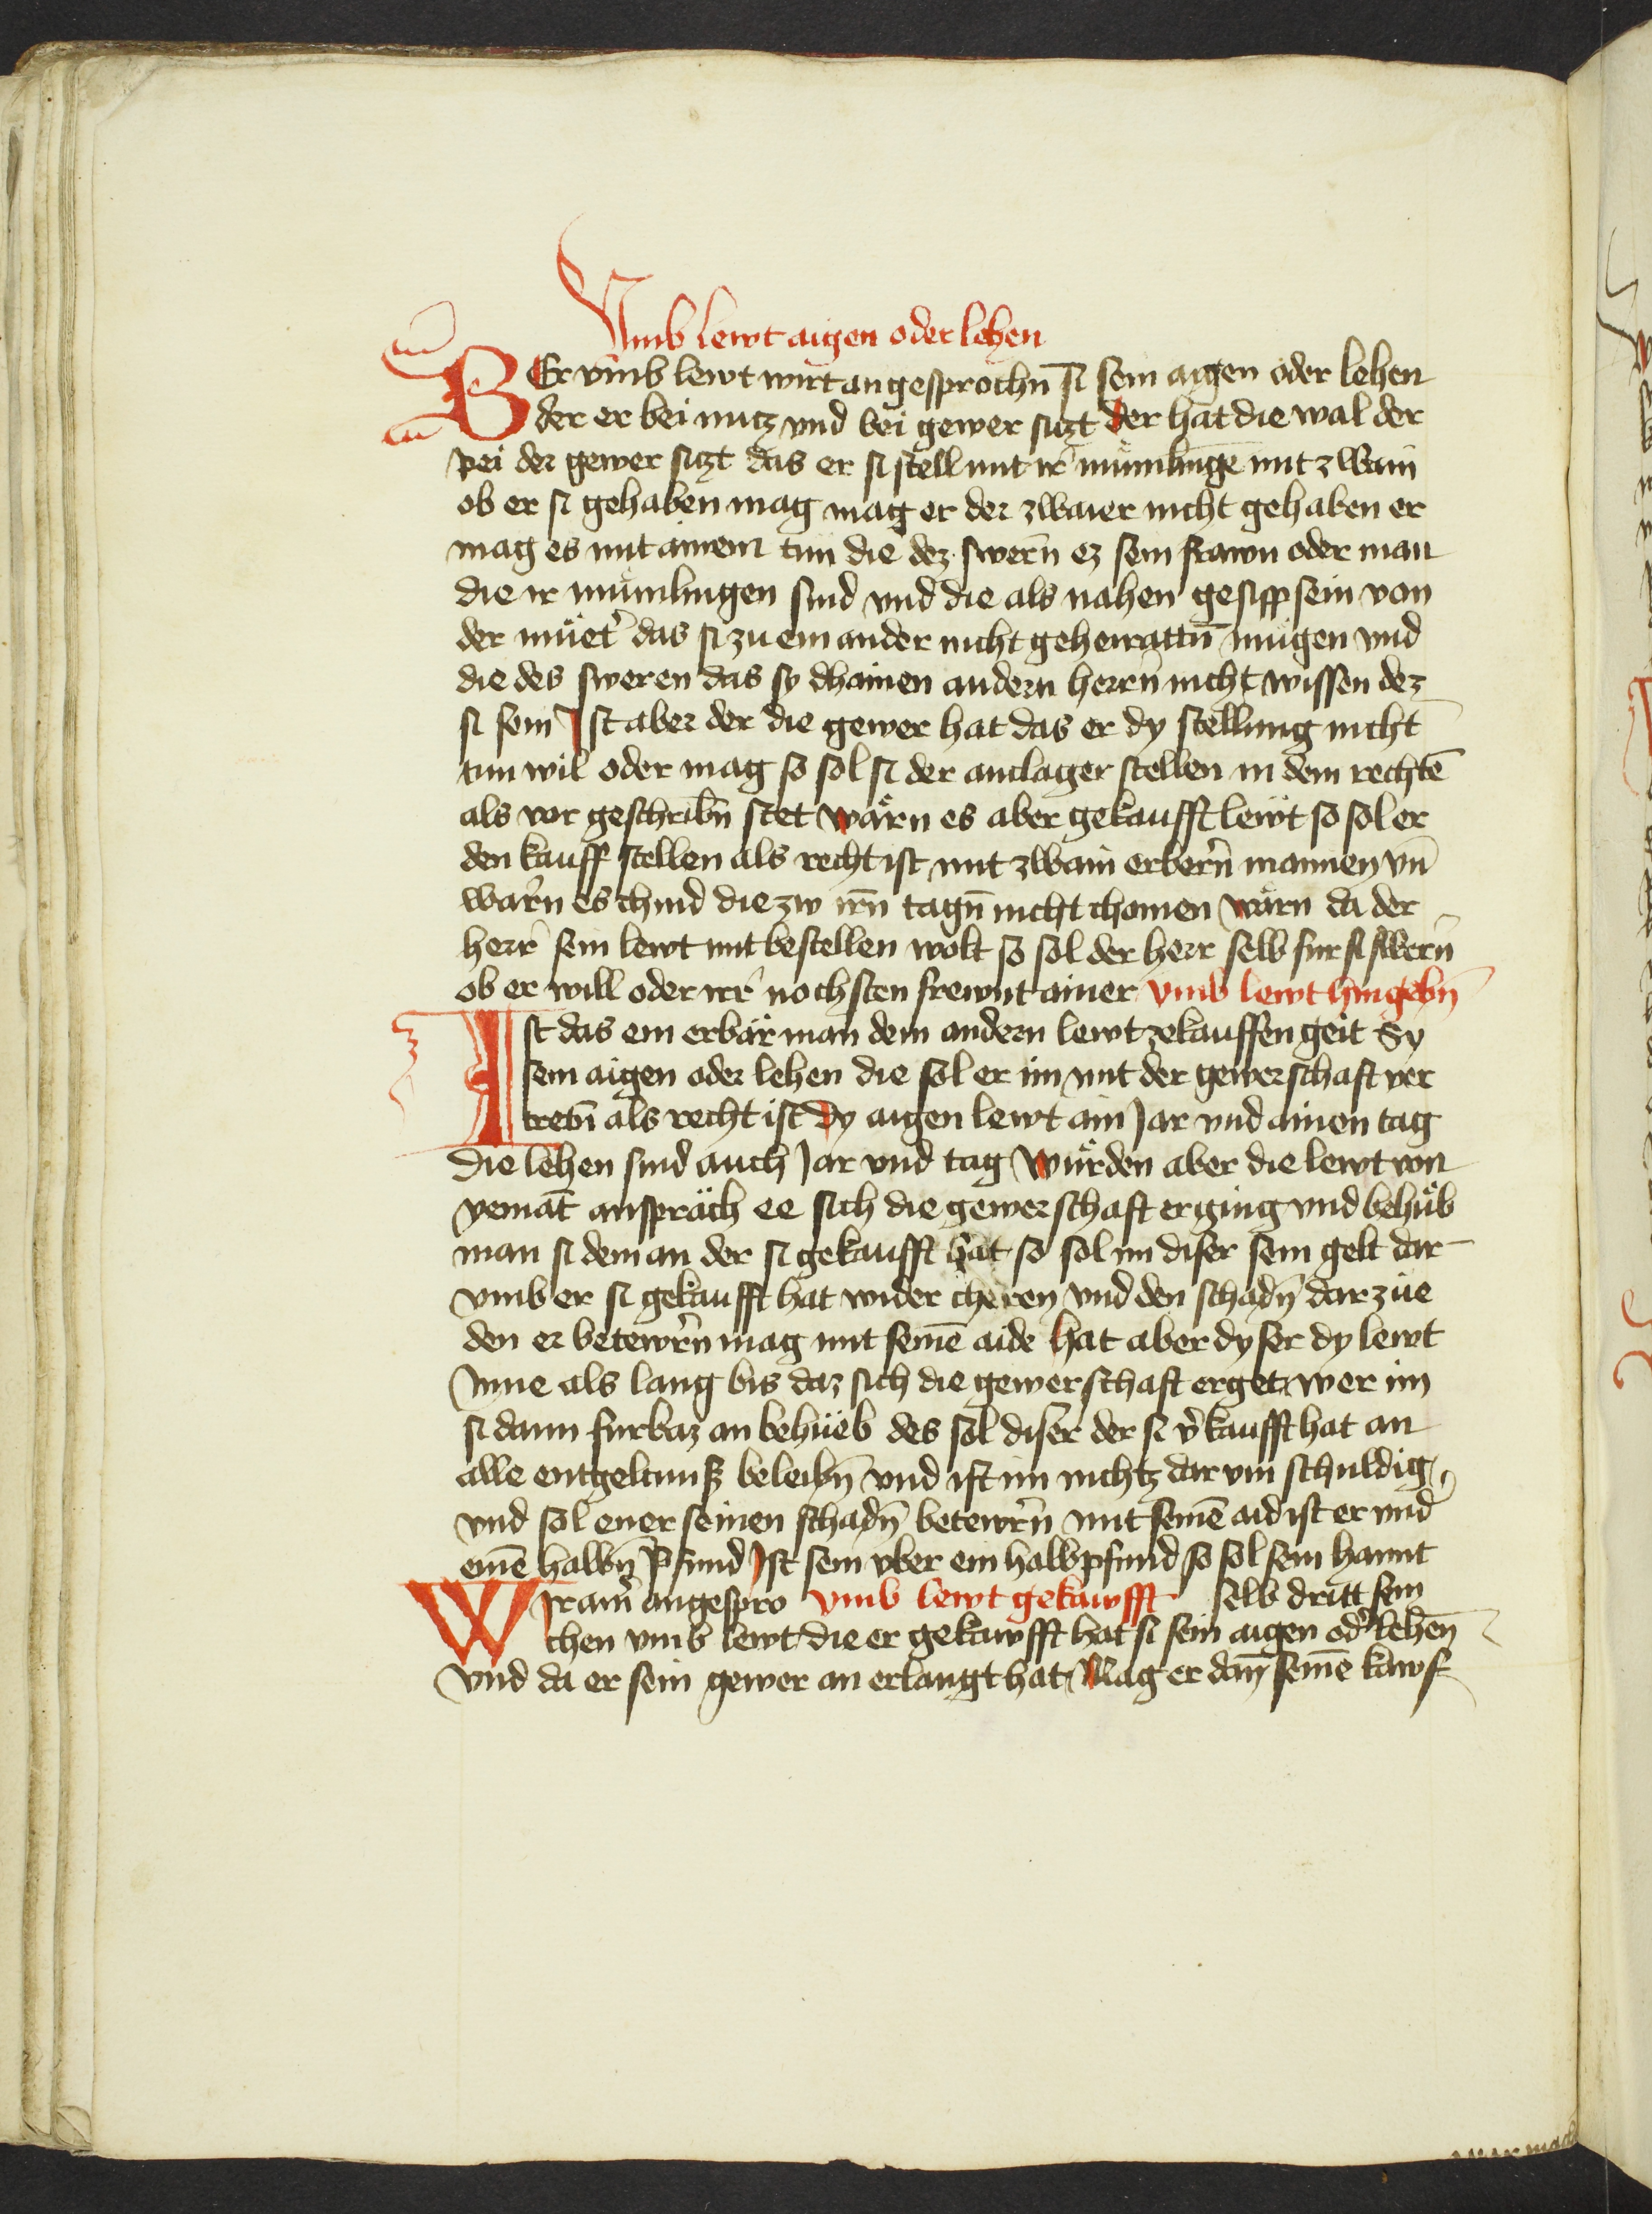 Vmb lewt aigen oder lehen
BEr vmb lewt wirt angesprochn̄ si sein aigen oder lehen
der er bei nutz vnd bei gewer sitzt der hat die wal der
pei der gewer sitzt das er si stell mit ir mümlinge mit zwain
ob er si gehaben mag mag er der zwaier nicht gehaben er
mag es mit ainem tun die dez swern̄ ez sein frawn oder man
die ir mümlingen sind vnd die als nahen gesipp sein von
der müet͛ das si zu einander nicht geheirattn̄ mügen vnd
die des sweren das sy dhainen andern herrn̄ nicht wissen dez
si sein Ist aber der die gewer hat das er dy stellung nicht
tun wil oder mag so sol si der anclager stellen in dem rechtē
als vor geschribn̄ stet wärn es aber gekaufft lewt so sol er
den kauff stellen als recht ist mit zwain erbern̄ mannen vn̄
warn̄ es chind die zw irn̄ tagn̄ nicht chomen wärn da der
herr͛ sein lewt mit bestellen wolt so sol der herr selb fur si swern̄
ob er will oder irr͛ nochsten frewnt ainer vmb lewt hingebn̄
Ist das ein erbär man dem andern lewt zekauffen geit Sy
sein aigen oder lehen die sol er im mit der gewerschaft ver
tretn̄ als recht ist Dy aigen lewt ain Jar vnd ainen tag
die lehen sind auch Jar vnd tag Würden aber die lewt von
yemāt anspräch ee sich die gewerschaft erging vnd behüb
man si dem an der si gekaufft hat so sol im diser sein gelt dar
vmb er si gekaufft hat wider cheren vnd den schadn̄ dar züe
den er betewrn̄ mag mit seinē aide hat aber dyser dy lewt
Inne als lang bis daz sich die gewerschaft erget wer im
si dann furbaz an behüeb des sol diser der si v͛kaufft hat an
alle entgeltnuß beleibn̄ vnd ist im nichtz dar vm schuldig
vnd sol ener seinen schadn̄ betewrn̄ mit seinē aid ist er vnd͛
einē halbn̄ pfund Ist sein vber ein halb pfund so sol sein hannt
Wir am̄ angespro vmb lewt gekawfft selb dritt sein
chen vmb lewt die er gekawfft hat si sein aigen od͛ lehen̄
vnd da er sein gewer an erlangt hat Mag er dan̄ seinē kawf